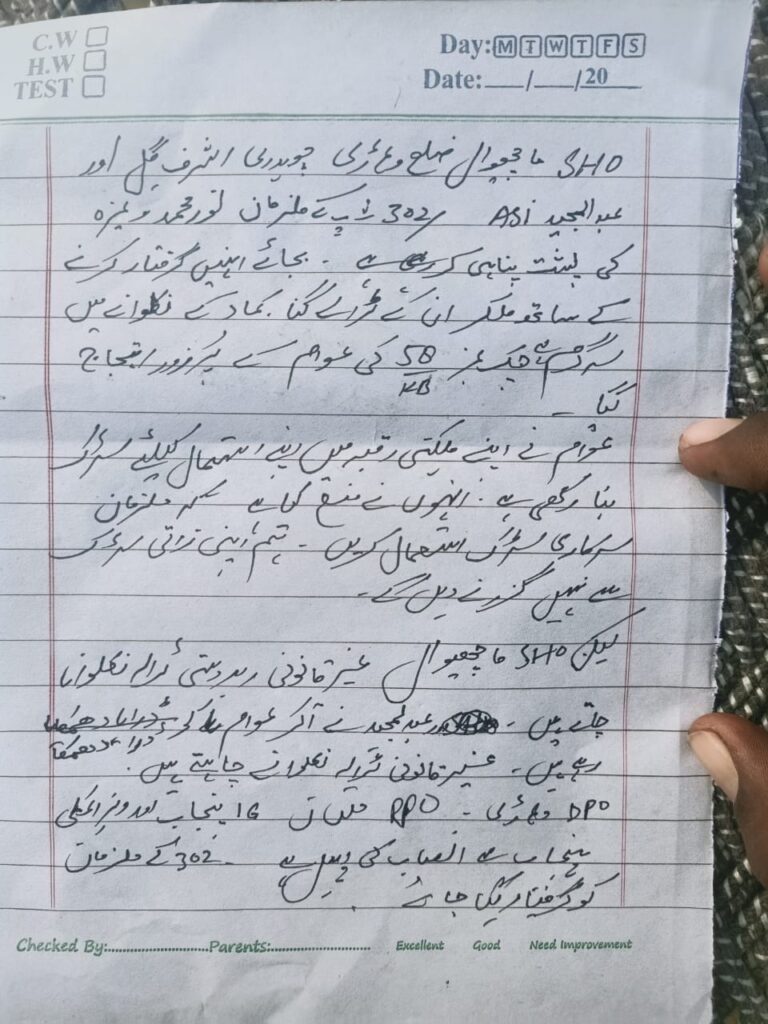 C.W
H.W
TEST
Day: M T W T F S
Date: ___/___/20___
SHO ماچھیوال ضلع وہاڑی چوہدری اشرف گل اور
عبدالمجید ASI 302/ ت پ کے ملزمان نور محمد وغیرہ
کی پشت پناہی کر رہے ہے ۔ بجائے انہیں گرفتار کرنے
کے ساتھ ملکر ان کے ٹرالے گنا کماد کے نکلوانے میں
سرگرم ہے چک نمبر 58/KB کی عوام کے پرزور احتجاج
کیا ۔
عوام نے اپنے ملکیتی رقبہ میں اپنے استعمال کیلئے سڑک
بنا رکھی ہے ۔ انہوں نے منع کیا ہے کہ ملزمان
سرکاری سڑک استعمال کریں ۔ ہم اپنی ذاتی سڑک
سے نہیں گزرنے دیں گے ۔
لیکن SHO ماچھیوال غیر قانونی زبردستی ٹرالہ نکلوانا
چاہتے ہیں ۔ عبدالمجید نے آکر عوام کو ڈرا دھمکا
رہے ہیں ۔ غیر قانونی ٹرالہ نکلوانے چاہتے ہیں ۔
DPO وہاڑی ۔ RPO ملتان IG پنجاب اور وزیر اعلی
پنجاب سے انصاب کی اپیل ہے ۔ 302 کے ملزمان
کو گرفتار کیا جائے ۔
Checked By:..........................Parents:.......................... Excellent Good Need Improvement